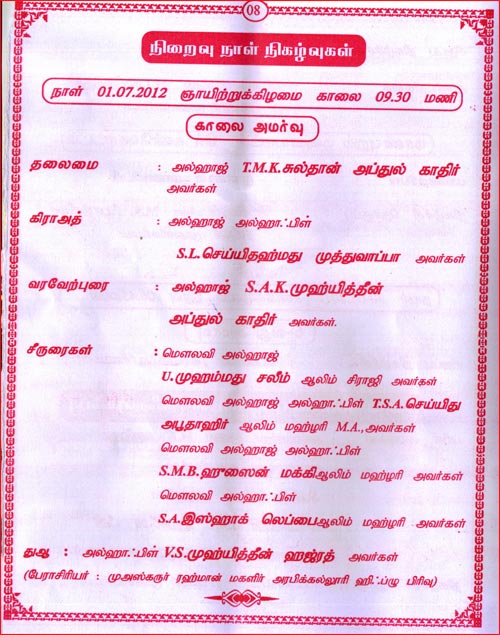 08
நிறைவு நாள் நிகழ்வுகள்
நாள் 01.07.2012 ஞாயிற்றுக்கிழமை காலை 09.30 மணி
காலை அமர்வு
தலைமை : அல்ஹாஜ் T.M.K.சுல்தான் அப்துல் காதிர்
அவர்கள்
கிராஅத் : அல்ஹாஜ் அல்ஹாஃபிள்
S.L.செய்யிதஹ்மது முத்துவாப்பா அவர்கள்
வரவேற்புரை : அல்ஹாஜ் S.A.K.முஹ்யித்தீன்
அப்துல் காதிர் அவர்கள்.
சீருரைகள் : மௌலவி அல்ஹாஜ்
U.முஹம்மது சலீம் ஆலிம் சிராஜி அவர்கள்
மௌலவி அல்ஹாஜ் அல்ஹாஃபிள் T.S.A.செய்யிது
அபூதாஹிர் ஆலிம் மஹ்ழரி M.A.,அவர்கள்
மௌலவி அல்ஹாஜ் அல்ஹாஃபிள்
S.M.B.ஹுஸைன் மக்கிஆலிம் மஹ்ழரி அவர்கள்
மௌலவி அல்ஹாஃபிள்
S.A.இஸ்ஹாக் லெப்பைஆலிம் மஹ்ழரி அவர்கள்
துஆ : அல்ஹாஃபிள் V.S.முஹ்யித்தீன் ஹஜ்ரத் அவர்கள்
(பேராசிரியர் : முஅஸ்கருர் ரஹ்மான் மகளிர் அரபிக்கல்லூரி ஹிஃப்ழு பிரிவு)